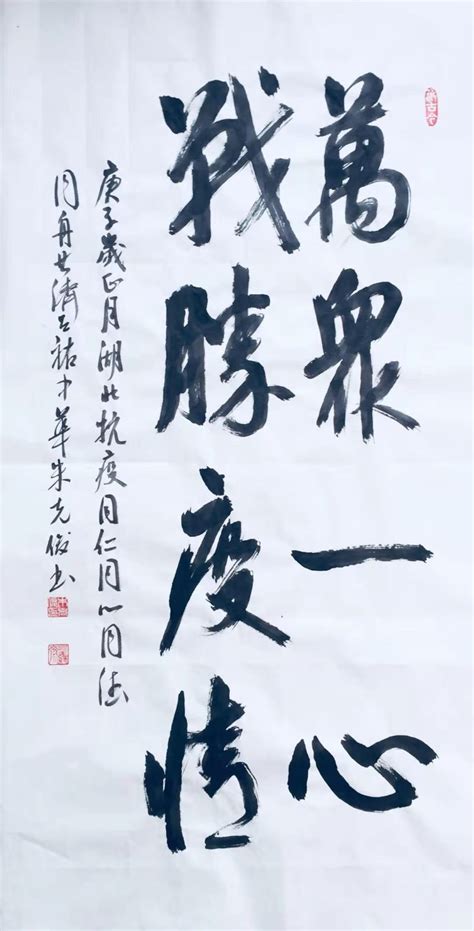 萬眾一心
戰勝疫情
庚子歲正月湖北抗疫同仁同心同德
同舟共濟天祐中華朱克俊书